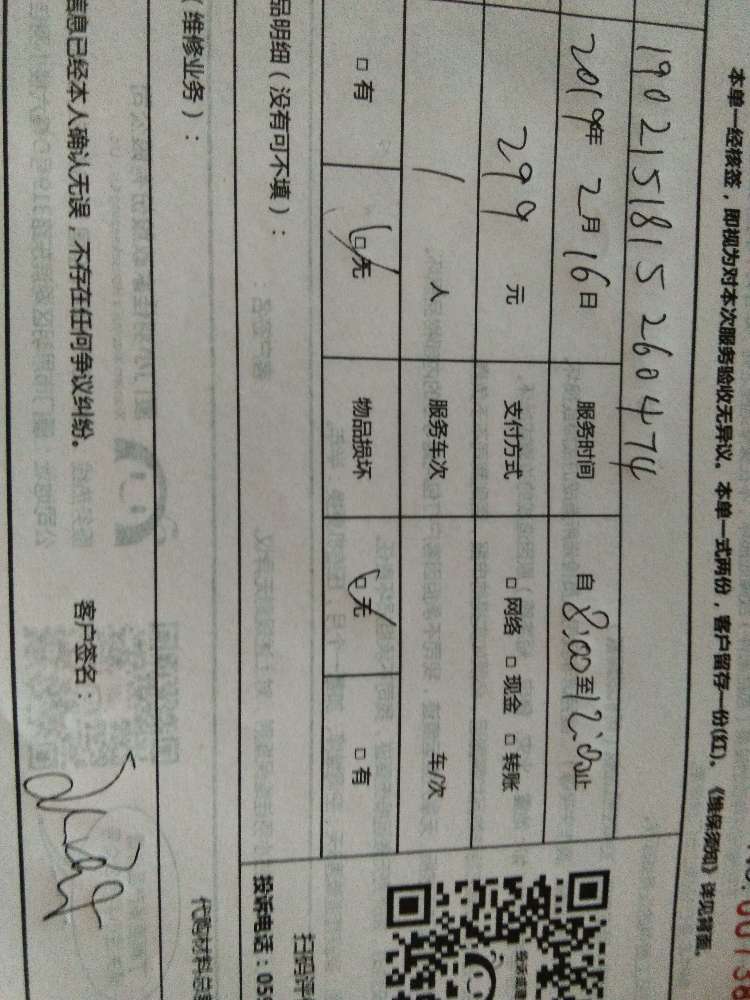 本单一经核签，即视为对本次服务验收无异议。本单一式两份，客户留存一份(红)。《维保须知》详见背面。
1902151815260474
2019年 2月 16日 服务时间 自 8:00 至 12:00 止
299 元 支付方式 □ 网络 □ 现金 □ 转账
1 人 服务车次 车/次
□ 有 □ 无 物品损坏 □ 无 □ 有
品明细（没有可不填）：
扫码评
投诉电话：059
（维修业务）：
代购材料总
信息已经本人确认无误，不存在任何争议纠纷。 客户签名：